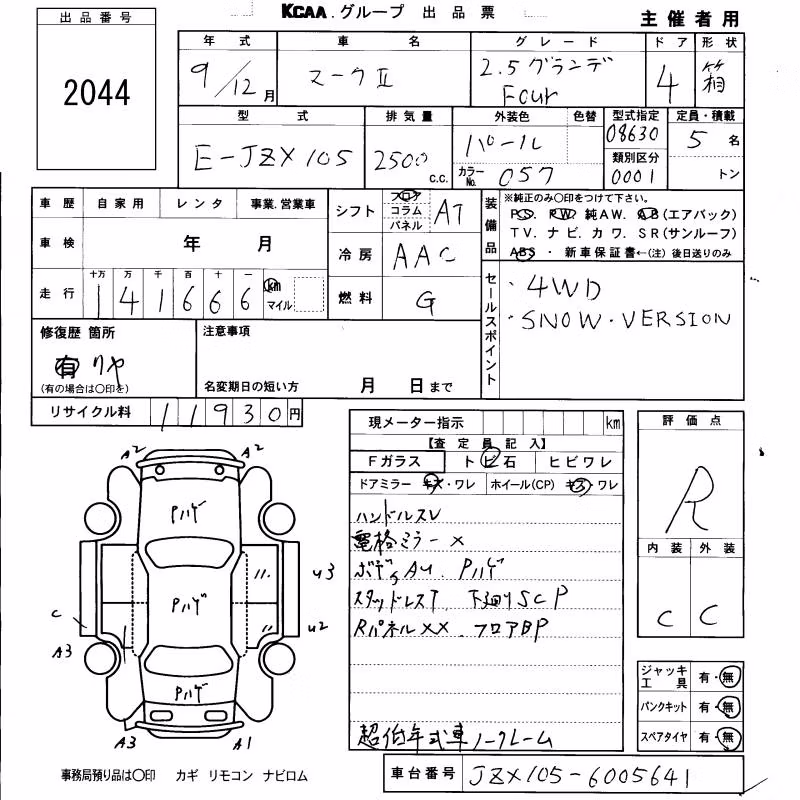 KCAA.グループ 出品票
主催者用
出品番号
2044
年式 車名 グレード ドア 形状
9/12月 マークⅡ 2.5グランデ Four 4 箱
型式 排気量 外装色 色替 型式指定 定員・積載
E-JZX105 2500 c.c. パール 08630 5名
カラーNo. 057 類別区分 0001 トン
車歴 自家用 レンタ 事業.営業車
車検 年 月
走行 十万 万 千 百 十 一
141666 km マイル
シフト フロア コラム パネル AT
冷房 AAC
燃料 G
装備品 ※純正のみ〇印をつけて下さい。
PS. PW. 純AW. AB(エアバック)
TV. ナビ. カワ. SR(サンルーフ)
ABS・新車保証書←(注)後日送りのみ
セールスポイント
・4WD
・SNOW・VERSION
修復歴 箇所
有 リヤ
(有の場合は〇印を)
注意事項
名変期日の短い方 月 日まで
リサイクル料 11930円
現メーター指示 km
【査定員記入】
Fガラス トビ石 ヒビワレ
ドアミラー キズ・ワレ ホイール(CP) キズ・ワレ
ハンドルスレ
電格ミラー×
ボデーAU. Pハゲ
スタッドレスT 下廻りSCP
Rパネル××. フロアBP
超低年式車ノークレーム
評価点
R
内装 外装
C C
ジャッキ工具 有・無
パンクキット 有・無
スペアタイヤ 有・無
A2 A2
Pハゲ
U3
Pハゲ
C U2
A3
Pハゲ
A3 A1
事務局預り品は〇印 カギ リモコン ナビロム
車台番号 JZX105-6005641